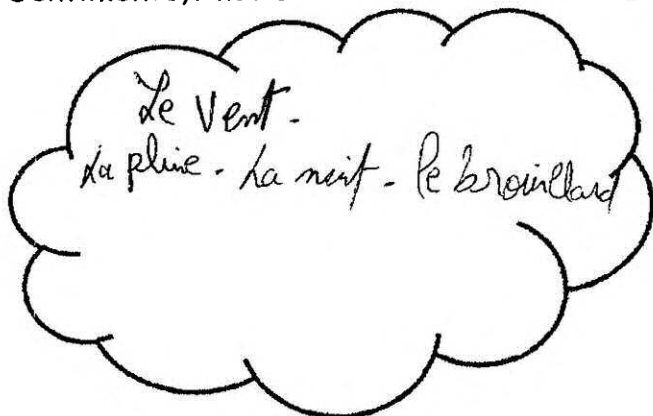 Le Vent.
La pluie - La nuit - le brouillard